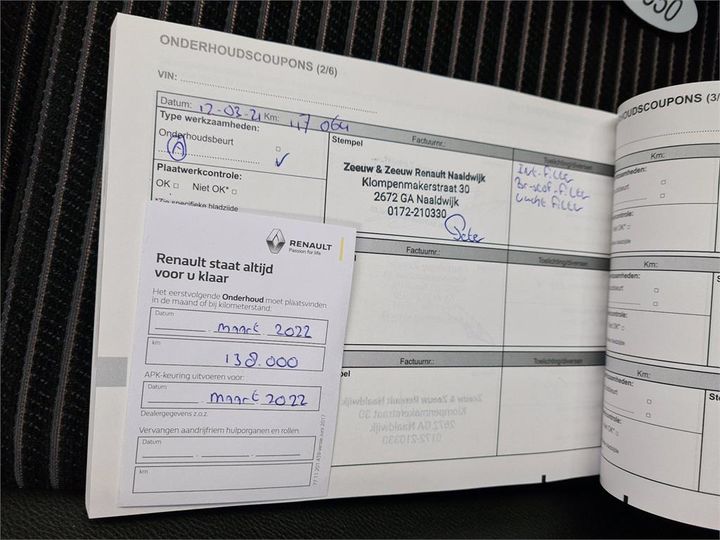 ONDERHOUDSCOUPONS (2/6)
VIN:
Datum: 17-03-21 Km: 117 064
Type werkzaamheden:
Onderhoudsbeurt
A
Plaatwerkcontrole:
OK Niet OK*
*Zie specifieke bladzijde
Stempel
Factuurnr.:
Zeeuw & Zeeuw Renault Naaldwijk
Klompenmakerstraat 30
2672 GA Naaldwijk
0172-210330
Toelichting/diversen
Int-filter
Br-stof-filter
Lucht filter
Factuurnr.:
Toelichting/diversen
Factuurnr.:
Toelichting/diversen
RENAULT
Passion for life
Renault staat altijd
voor u klaar
Het eerstvolgende Onderhoud moet plaatsvinden
in de maand of bij kilometerstand:
Datum
maart 2022
km
138.000
APK-keuring uitvoeren voor:
Datum
maart 2022
Dealergegevens z.o.z.
Vervangen aandrijfriem hulporganen en rollen:
Datum
km
Zeeuw & Zeeuw Renault Naaldwijk
Klompenmakerstraat 30
2672 GA Naaldwijk
0172-210330
Km:
Km:
Km: